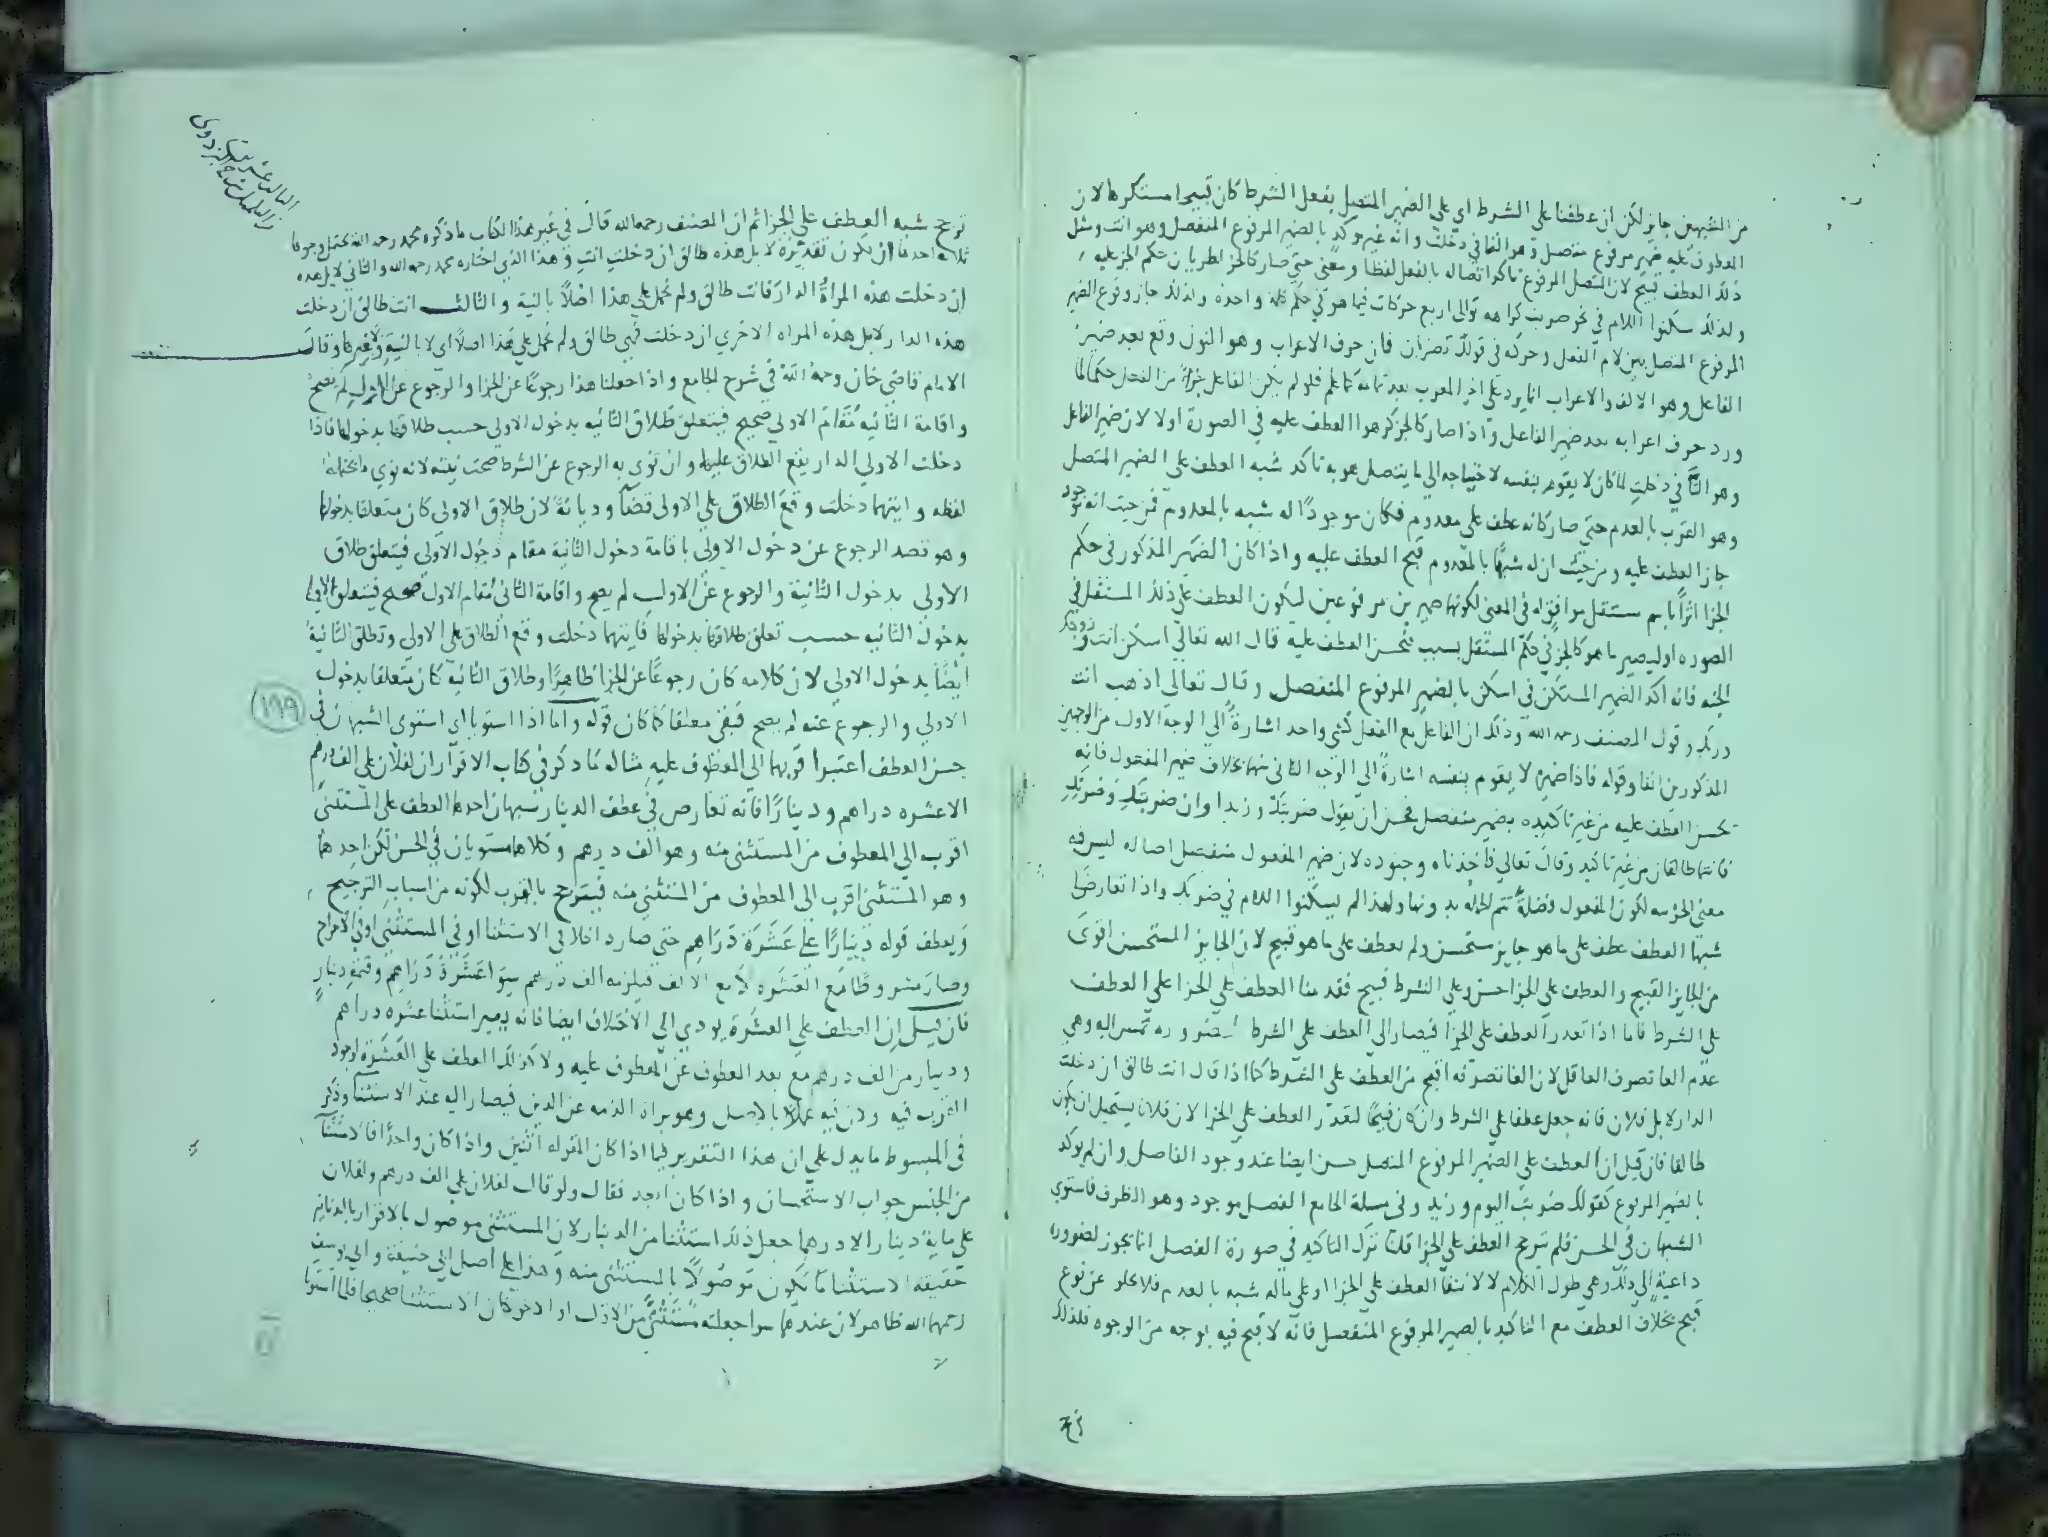 من الشبهين جايز لكن ان عطفنا على الشرط اي على الضمير المتصل بفعل الشرط كان قبيحا مستكرها لان
المعطوف عليه ضمير مرفوع متصل وهو التا في دخلت وانه غير موكد بالضمير المرفوع المنفصل وهو انت ومثل
ذلك العطف قبيح لان المتصل المرفوع تاكد اتصاله بالفعل لفظا ومعنى حتى صار كالجزا لطريان حكم الجز عليه
ولذلك سكنوا اللام في نحو ضربت كراهة توالى اربع حركات فيما هو في حكم كلمة واحدة ولذلك جاز وقوع الضمير
المرفوع المتصل بين لام الفعل وحركه في قولك تضربان فان حرف الاعراب وهو النون وقع بعد ضمير
الفاعل وهو الالف والاعراب انما يرد على اخر المعرب بعد تمامه فلو لم يكن الفاعل جزا من الفعل حكما لما
ورد حرف اعرابه بعد ضمير الفاعل واذا صار كالجز كره هوا العطف عليه في الصورة اولا لان ضمير الفاعل
وهو التا في دخلت لما كان لا يقوم بنفسه لاحتياجه الى ما يتصل هو به تاكد شبه العطف على الضمير المتصل
وهو القرب بالعدم حتى صار كانه عطف على معدوم فكان موجودا له شبه بالمعدوم فمن حيث انه موجود
جاز العطف عليه ومن حيث ان له شبها بالمعدوم قبح العطف عليه واذا كان الضمير المذكور في حكم
الجزا اثرا باسم مستقل موافق له في المعنى لكونهما ضميرين مرفوعين ليكون العطف على ذلك المستقل في
الصوره اوليصير ما هو كالجز في حكم المستقل بسبب فيحسن العطف عليه قال الله تعالى اسكن انت وزوجك
الجنه فانه اكد الضمير المستكن في اسكن بالضمير المرفوع المنفصل وقال تعالى اذهب انت
وربك وقول المصنف رحمه الله وذلك ان الفاعل مع الفعل كشي واحد اشارة الى الوجه الاول من الوجهين
المذكورين انفا وقوله فاذا ضميره لا يقوم بنفسه اشارة الى الوجه الثانى منهما بخلاف ضمير المفعول فانه
يحسن العطف عليه من غير تاكيده بضمير منفصل فحسن ان يقول ضربتك وزيدا وان ضربتك وضربتك
فانتما طالقان من غير تاكيد وقال تعالى فاخذناه وجنوده لان ضمير المفعول منفصل اصاله ليس فيه
معنى الجزييه لكون المفعول فضلة تتم الجمله بدونها ولهذا لم يسكنوا اللام في ضربك واذا تعارض
شبها العطف عطف على ما هو جايز مستحسن ولم يعطف على ما هو قبيح لان الجايز المستحسن اقوى
من الجايز القبيح والعطف على الجزا حسن وعلى الشرط قبيح فقدمنا العطف على الجزا على العطف
على الشرط فاما اذا تعدر العطف على الجزا فيصار الى العطف على الشرط لضرورة تمس اليه وهي
عدم الغا تصرف العاقل لان الغا تصرفه اقبح من العطف على الشرط كما اذا قال انت طالق ان دخلت
الدار لا بل فلان فانه جعل عطفا على الشرط وان كان قبيحا لتعدر العطف على الجزا لان فلانا يستحيل ان يكون
طالقا فان قيل ان العطف على الضمير المرفوع المتصل حسن ايضا عند وجود الفاصل وان لم يوكد
بالضمير المرفوع كقولك ضربت اليوم وزيد وفى مسيلة الجامع الفصل موجود وهو الظرف فاستوى
الشبهان في الحسن فلم ترجح العطف على الجزا قلنا ترك التاكيد في صورة الفصل انما يجوز لضرورة
داعية الى ذلك وهي طول الكلام لا لانتفا العطف على الجزا او على ماله شبه بالعدم فلا يخلو عن نوع
قبح بخلاف العطف مع التاكيد بالضمير المرفوع المنفصل فانه لا قبح فيه بوجه من الوجوه فلذلك
ترجح
ترجح شبه العطف على الجزا ثم ان المصنف رحمه الله قال في غير هذا الكتاب ما ذكره محمد رحمه الله يحتمل وجوها
ثلاثه احدها ان يكون تقديره لا بل هذه طالق ان دخلت انت وهذا الذي اختاره محمد رحمه الله والثانى لا بل هذه
ان دخلت هذه المراة الدار فانت طالق ولم يحمل على هذا اصلا بالنية والثالث انت طالق ان دخلت
هذه الدار لا بل هذه المراه الاخرى ان دخلت فهى طالق ولم يحمل على هذا اصلا اى لا بالنية ولا بغيرها وقال
الامام قاضى خان رحمه الله في شرح الجامع واذا جعلنا هذا رجوعا عن الجزا والرجوع عن الاول لم يصح
واقامة الثانيه مقام الاولى صحيح فيتعلق طلاق الثانيه بدخول الاولى حسب طلاقها بدخولها فاذا
دخلت الاولى الدار يقع الطلاق عليهما وان نوى به الرجوع عن الشرط صحت نيته لانه نوى ما يحتمله
لفظه وايتهما دخلت وقع الطلاق على الاولى قضا وديانة لان طلاق الاولى كان متعلقا بدخولها
وهو قصد الرجوع عن دخول الاولى باقامة دخول الثانية مقام دخول الاولى فيتعلق طلاق
الاولى بدخول الثانية والرجوع عن الاول لم يصح واقامة الثانى مقام الاول صحيح فيتعلق الاولى
بدخول الثانيه حسب تعلق طلاقها بدخولها فايتهما دخلت وقع الطلاق على الاولى وتطلق الثانية
ايضا بدخول الاولى لان كلامه كان رجوعا عن الجزا ظاهرا وطلاق الثانية كان متعلقا بدخول
الاولى والرجوع عنه لم يصح فبقى معلقا كما كان قوله واما اذا استويا اى استوى الشبهان في
حسن العطف اعتبر اقربهما الى المعطوف عليه مثاله ما ذكر في كتاب الاقرار ان لفلان على الف درهم
الاعشره دراهم ودينارا فانه تعارض في عطف الدينار شبهان احدهما العطف على المستثنى
اقرب الى المعطوف من المستثنى منه وهو الف درهم وكلاهما مستويان في الحسن لكن احدهما
وهو المستثنى اقرب الى المعطوف من المستثنى منه فيترجح بالقرب لكونه من اسباب الترجيح
ويعطف قوله دينارا على عشرة دراهم حتى صار داخلا في الاستثنا او في المستثنى او في الاخراج
وصار مشروطا مع العشره لا مع الالف فيلزمه الف درهم سوا عشرة دراهم وقيمة دينار
فان قيل ان العطف على العشرة يودى الى الاختلاف ايضا فانه يصير استثنا عشره دراهم
ودينار من الف درهم مع بعد المعطوف عن المعطوف عليه ولا كذلك العطف على العشرة لوجود
القرب فيه ولان فيه عملا بالاصل وهو براة الذمه عن الدين فيصار اليه عند الاستثنا وذكر
فى المبسوط ما يدل على ان هذا التقرير فيما اذا كان المقر له اثنين واذا كان واحدا فالاستثنا
من الجنس جواب الاستحسان واذا كان ابعد فقال ولو قال لفلان على الف درهم ولفلان
على ماية دينار الا درهما جعل ذلك استثنا من الدينار لان المستثنى موصول بالاقرار بالدنانير
حقيقه الاستثنا ما يكون موصولا بالمستثنى منه وهذا على اصل ابى حنيفة وابى يوسف
رحمهما الله ظاهر لان عندهما سوا جعلته مستثنى من الاول او الاخر كان الاستثنا صحيحا فلما استويا
١٩٩